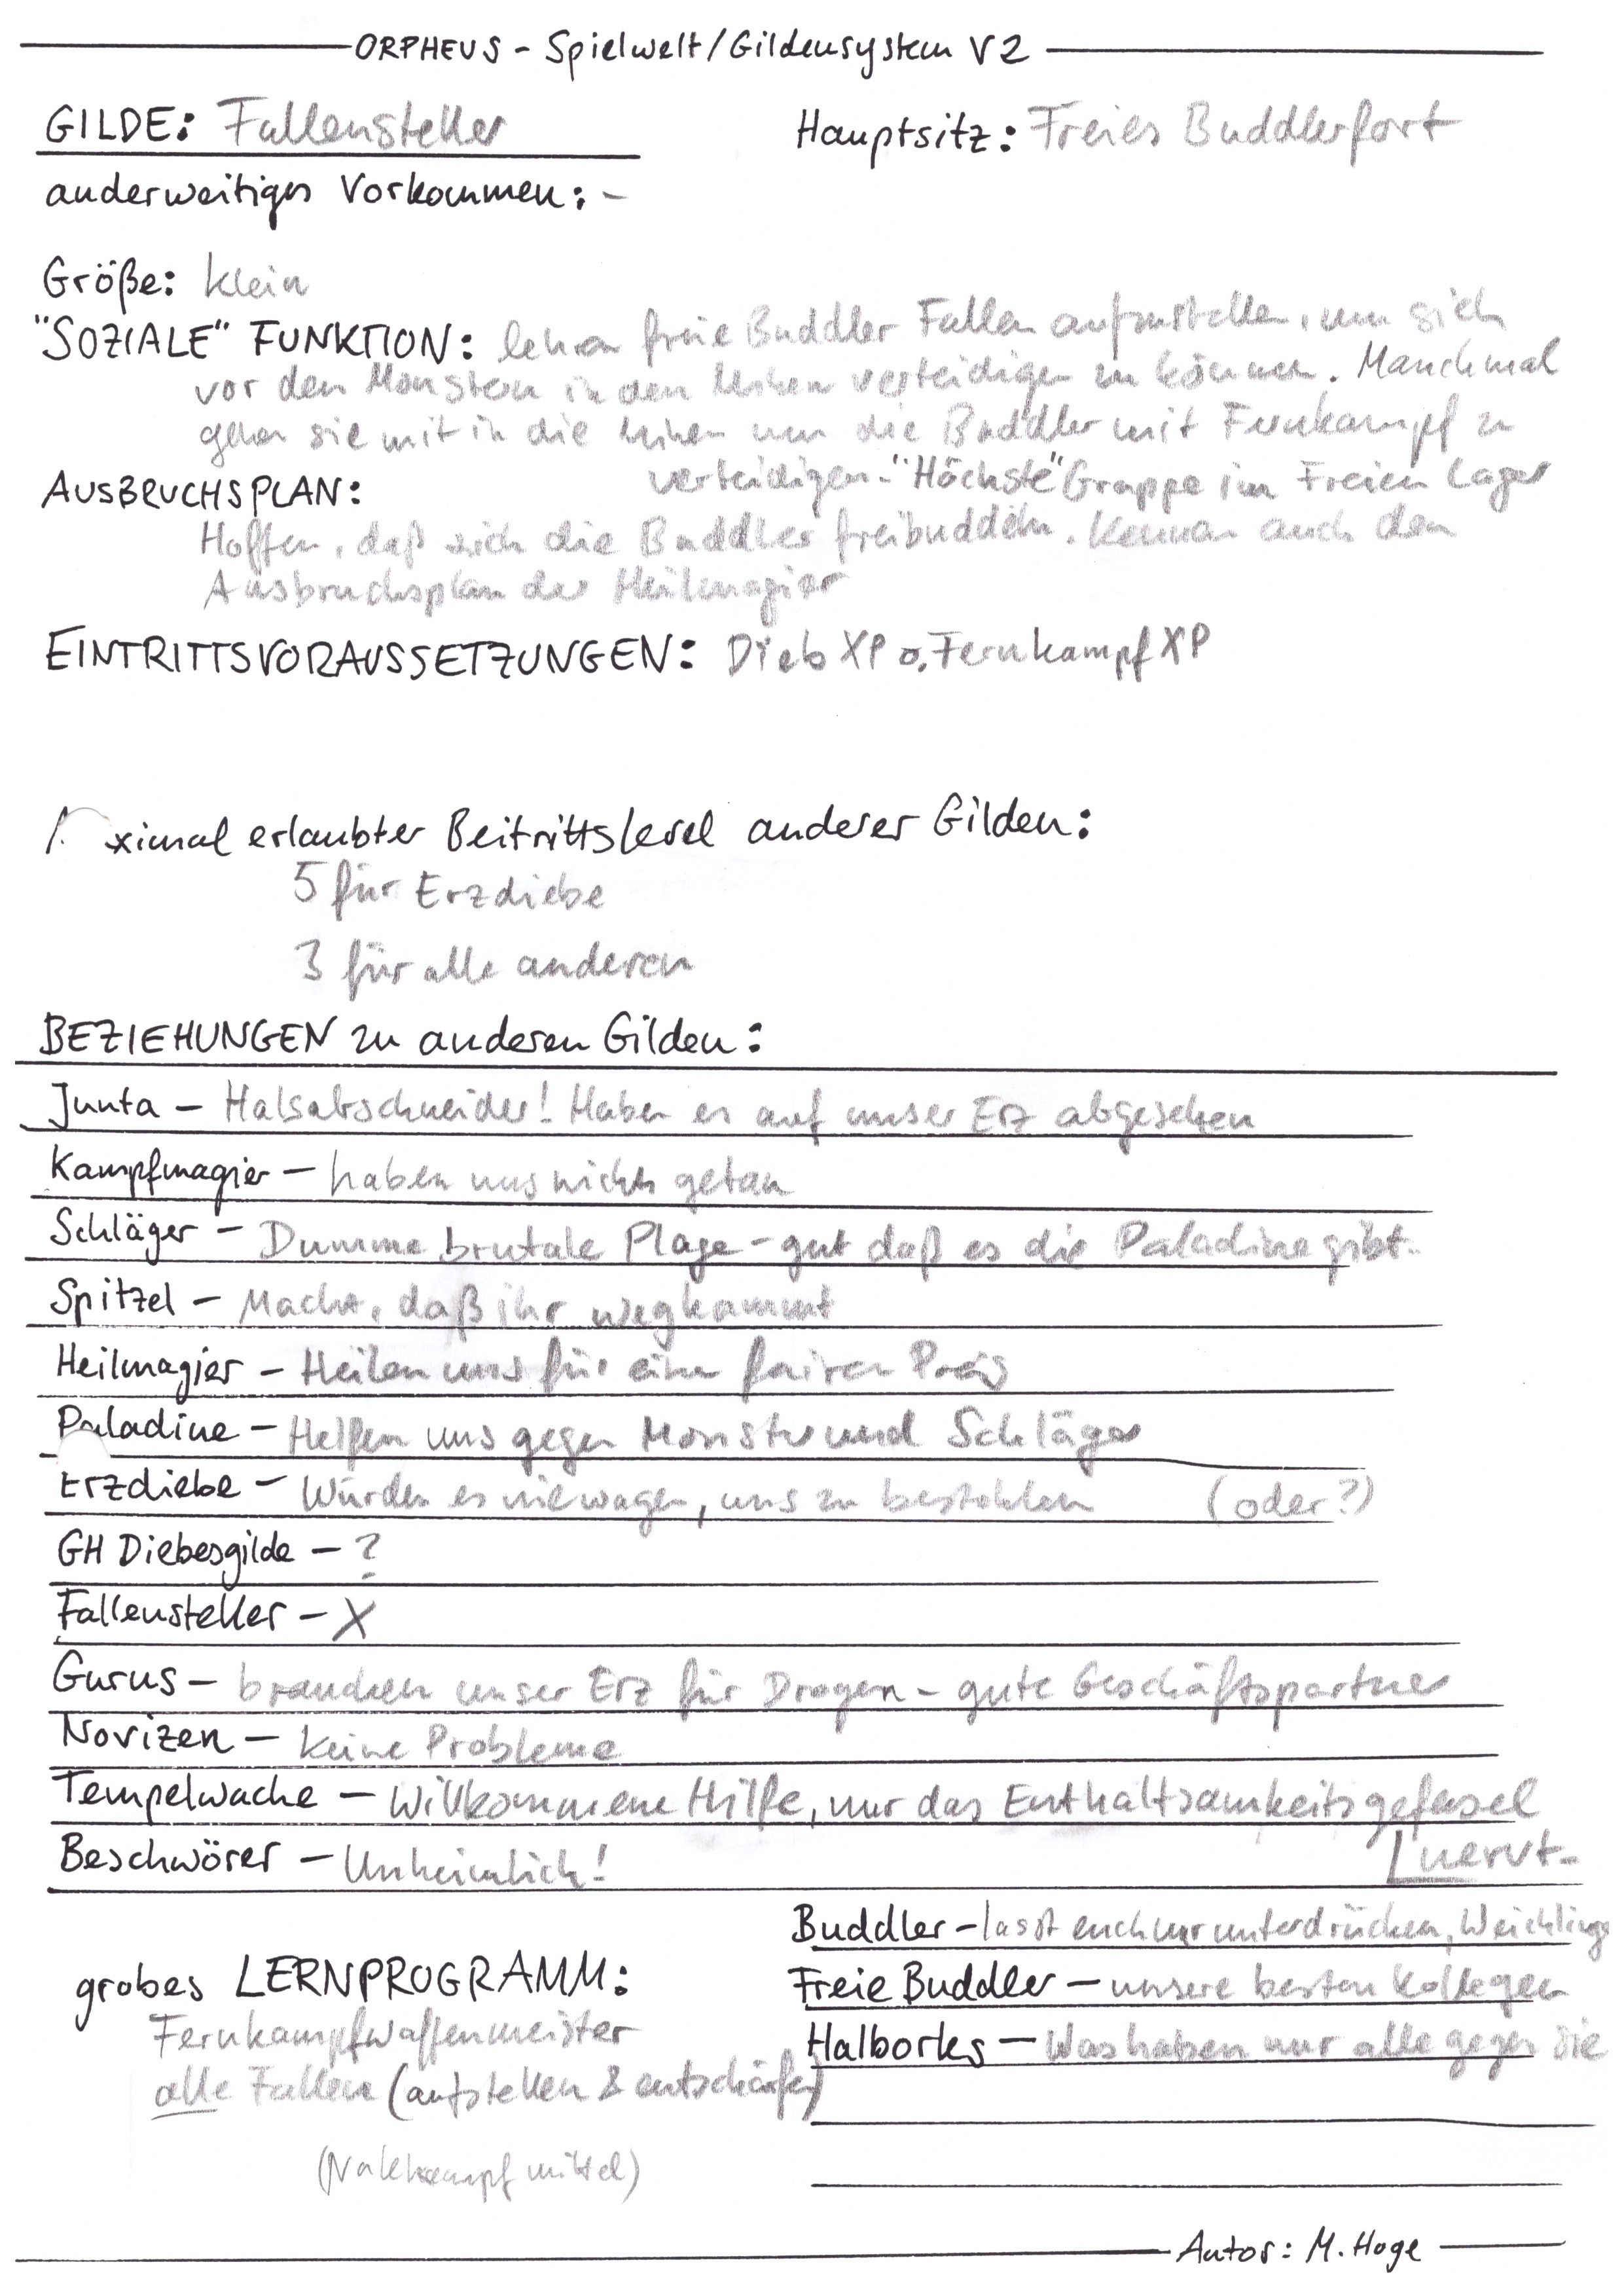 ORPHEUS - Spielwelt/Gildensystem V2
GILDE: Fallensteller Hauptsitz: Freies Buddlerfort
anderweitiges Vorkommen: -
Größe: klein
"SOZIALE" FUNKTION: lehren freie Buddler Fallen aufzustellen, um sich
vor den Monstern in den Minen verteidigen zu können. Manchmal
gehen sie mit in die Minen um die Buddler mit Fernkampf zu
verteidigen. "Höchste" Gruppe im Freien Lager
AUSBRUCHSPLAN:
Hoffen, daß sich die Buddler freibuddeln. Kennen auch den
Ausbruchsplan der Heilmagier
EINTRITTSVORAUSSETZUNGEN: Dieb XP o. Fernkampf XP
ximal erlaubter Beitrittslevel anderer Gilden:
5 für Erzdiebe
3 für alle anderen
BEZIEHUNGEN zu anderen Gilden:
Junta - Halsabschneider! Haben es auf unser Erz abgesehen
Kampfmagier - haben uns nichts getan
Schläger - Dumme, brutale Plage - gut daß es die Paladine gibt.
Spitzel - Macht, daß ihr wegkommt
Heilmagier - Heilen uns für einen fairen Preis
Paladine - Helfen uns gegen Monster und Schläger
Erzdiebe - Würden es nie wagen, uns zu bestehlen (oder?)
GH Diebesgilde - ?
Fallensteller - X
Gurus - brauchen unser Erz für Drogen - gute Geschäftspartner
Novizen - keine Probleme
Tempelwache - Willkommene Hilfe, nur das Enthaltsamkeitsgefasel
nervt.
Beschwörer - Unheimlich!
Buddler - lasst euch nur unterdrücken, Weichlinge
Freie Buddler - unsere besten Kollegen
Halborks - Was haben nur alle gegen die
grobes LERNPROGRAMM:
Fernkampfwaffenmeister
alle Fallen (aufstellen & entschärfen)
(Nahkampf mittel)
Autor: M. Hoge